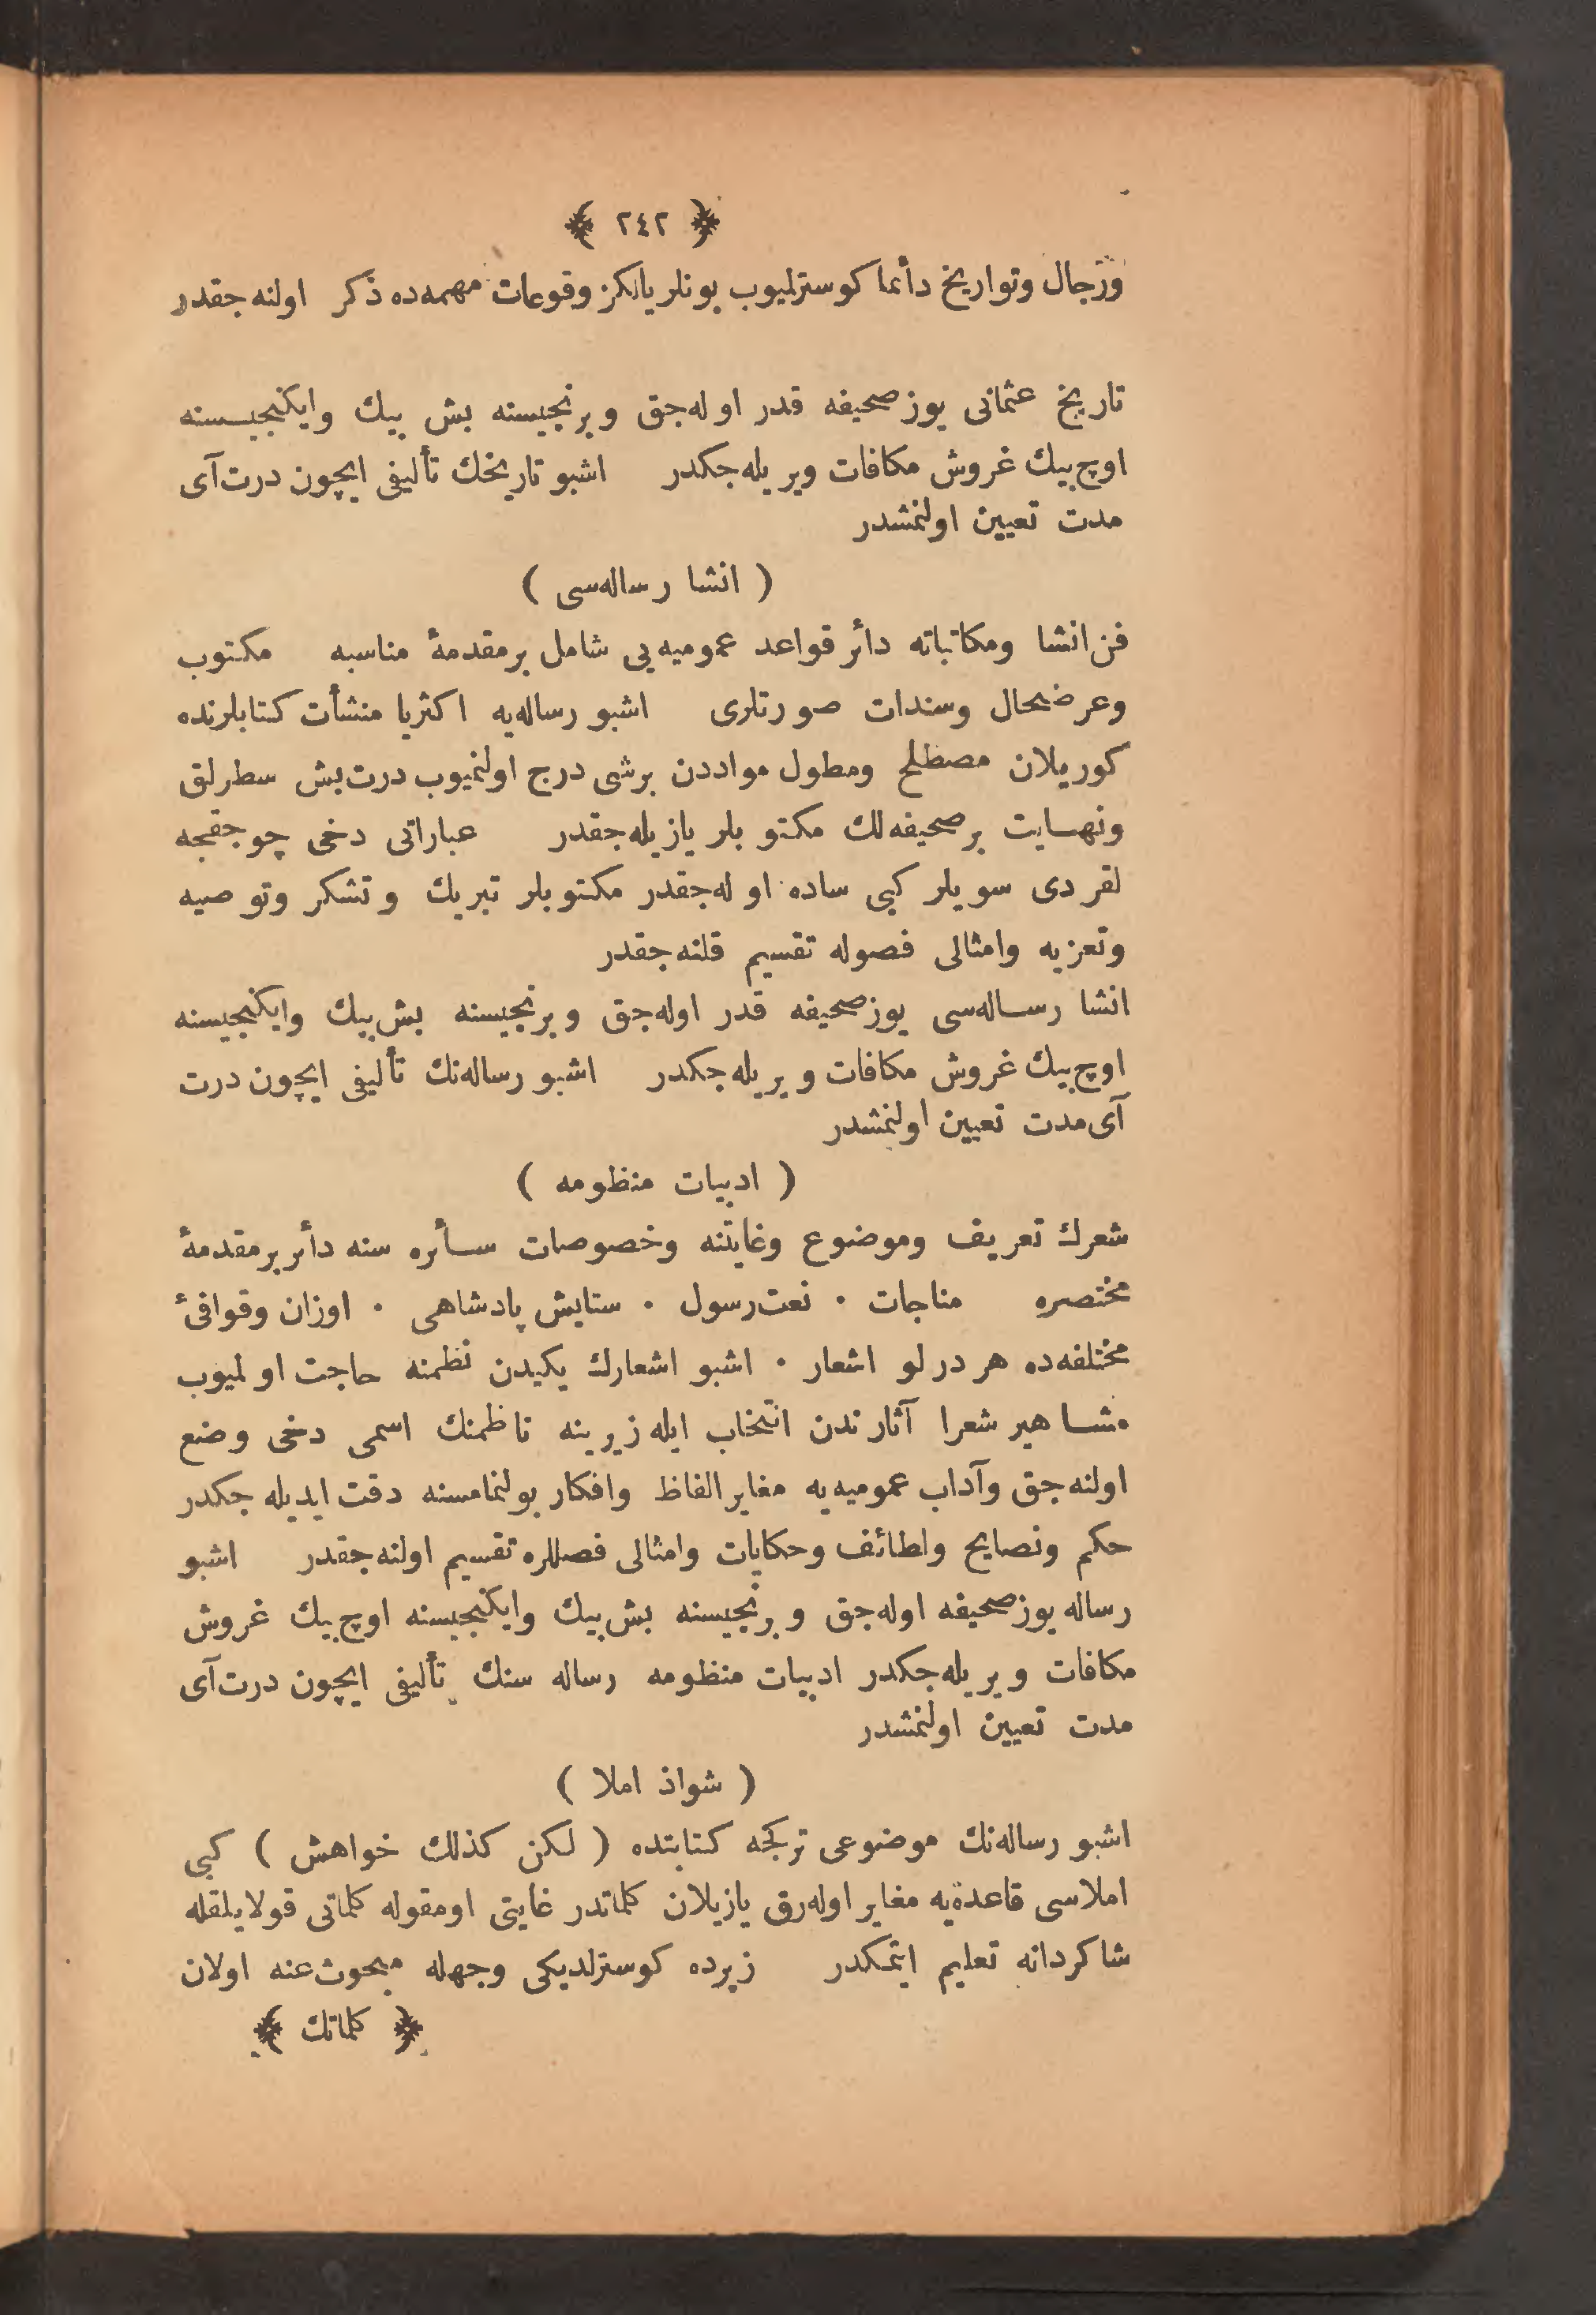 ﴿ ٢٤٢ ﴾
ورجال وتواريخ دأئما كوسترلميوب بونلر يالكز وقوعات مهمه‌ده ذكر اولنه جقدر
تاريخ عثمانى يوز صحيفه قدر اوله‌جق و برنجيسنه بش بيك وايكنجيسنه
اوچ بيك غروش مكافات ويريله‌جكدر اشبو تاريخك تأليفى ايچون درت آى
مدت تعيين اولنمشدر
( انشا رساله‌سى )
فن انشا ومكاتباته دأئر قواعد عموميه‌يى شامل برمقدمهٔ مناسبه مكتوب
وعرضحال وسندات صورتلرى اشبو رساله‌يه اكثريا منشأت كتابلرنده
كوريلان مصطلح ومطول مواددن برشى درج اولنميوب درت بش سطرلق
ونهايت برصحيفه‌لك مكتوبلر يازيله‌جقدر عباراتى دخى چوجقجه
لقردى سويلر كبى ساده اوله‌جقدر مكتوبلر تبريك وتشكر وتوصيه
وتعزيه وامثالى فصوله تقسيم قلنه جقدر
انشا رساله‌سى يوز صحيفه قدر اوله‌جق و برنجيسنه بش بيك وايكنجيسنه
اوچ بيك غروش مكافات ويريله‌جكدر اشبو رساله‌نك تأليفى ايچون درت
آى مدت تعيين اولنمشدر
( ادبيات منظومه )
شعرك تعريف وموضوع وغايتنه وخصوصات سأئره سنه دأئر برمقدمهٔ
مختصره مناجات · نعت رسول · ستايش پادشاهى · اوزان وقوافئ
مختلفه‌ده هر درلو اشعار · اشبو اشعارك يكيدن نظمنه حاجت اولميوب
مشاهير شعرا آثارندن انتخاب ايله زيرينه ناظمنك اسمى دخى وضع
اولنه جق وآداب عموميه‌يه مغاير الفاظ وافكار بولنمامسنه دقت ايديله جكدر
حكم ونصايح ولطائف وحكايات وامثالى فصللره تقسيم اولنه جقدر اشبو
رساله يوز صحيفه اوله‌جق و برنجيسنه بش بيك وايكنجيسنه اوچ بيك غروش
مكافات ويريله‌جكدر ادبيات منظومه رساله سنك تأليفى ايچون درت آى
مدت تعيين اولنمشدر
( شواذ املا )
اشبو رساله‌نك موضوعى تركجه كتابتده ( لكن كذلك خواهش ) كبى
املاسى قاعده‌يه مغاير اوله‌رق يازيلان كلماتدر غايتى اومقوله كلماتى قولايلقله
شاكردانه تعليم ايتمكدر زيرده كوسترلديكى وجهله مبحوث عنه اولان
﴿ كلماتك ﴾